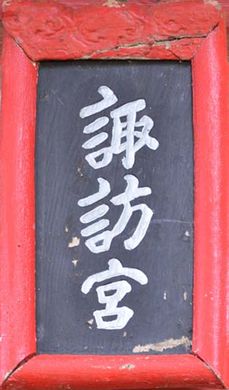 諏訪宮